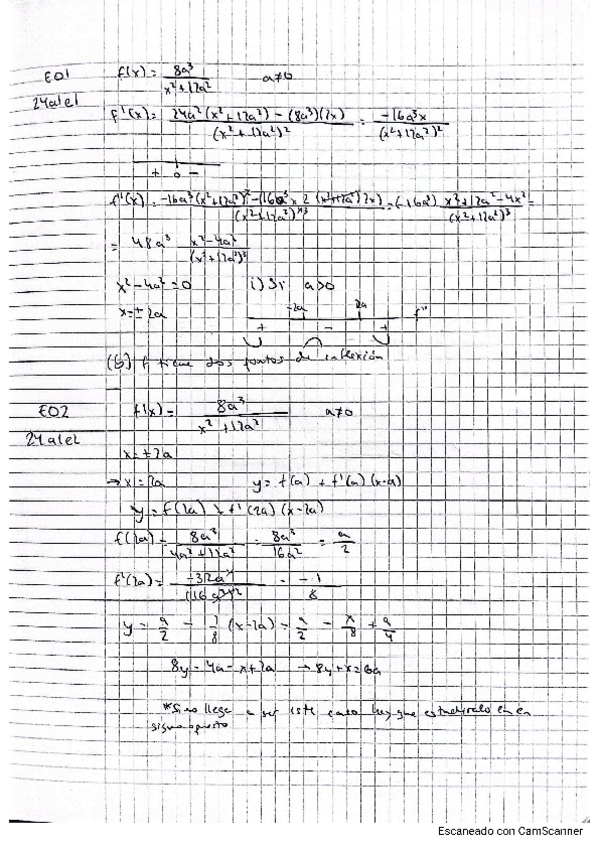 E01
24a1e1
f(x) = 8a³/(x²+12a²)   a≠0
f'(x) = (24a²(x²+12a²) - (8a³)(2x))/(x²+12a²)² = -16a³x/(x²+12a²)²
+ 0 -
= 48a³ (x²-4a²)/(x²+12a²)³
x²-4a²=0   i) Si a>0
x=±2a   -2a   2a   f''
+   -   +
(b) f tiene dos puntos de inflexión
E02
24a1e2
f(x) = 8a³/(x²+12a²)   a≠0
x=±2a
→ x=2a   y = f(a) + f'(a)(x-a)
y = f(2a) + f'(2a)(x-2a)
f(2a) = 8a³/(4a²+12a²) = 8a³/16a² = a/2
f'(2a) = -32a⁴/(16a²)² = -1/8
y = a/2 - 1/8 (x-2a) = a/2 - x/8 + a/4
8y = 4a - x + 2a → 8y + x = 6a
*Si no llega a ser este caso hay que estudiarlo en
signo opuesto
Escaneado con CamScanner